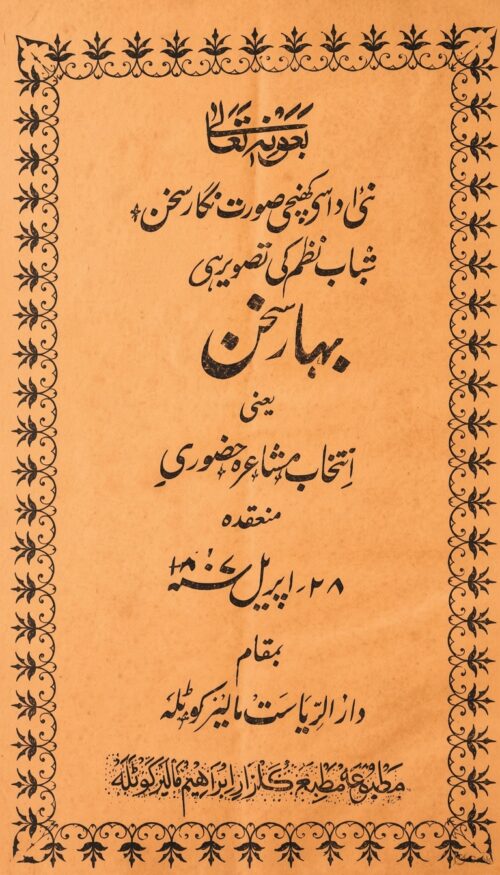 بعونہ تعالیٰ
نئی ادا سی کھنچی صورت نگار سخن
شباب نظم کی تصویر ہی
بہار سخن
یعنی
انتخاب مشاعرہ حضوری
منعقدہ
۲۸ ۔ اپریل سنہ
بمقام
دار الریاست مالیر کوٹلہ
مطبوعہ مطبع گلزار ابراہیم مالیر کوٹلہ